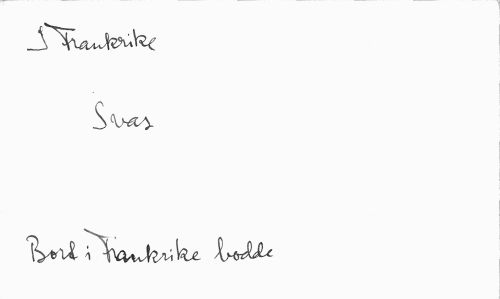 I Frankrike
Svas
Bort i Frankrike bodde